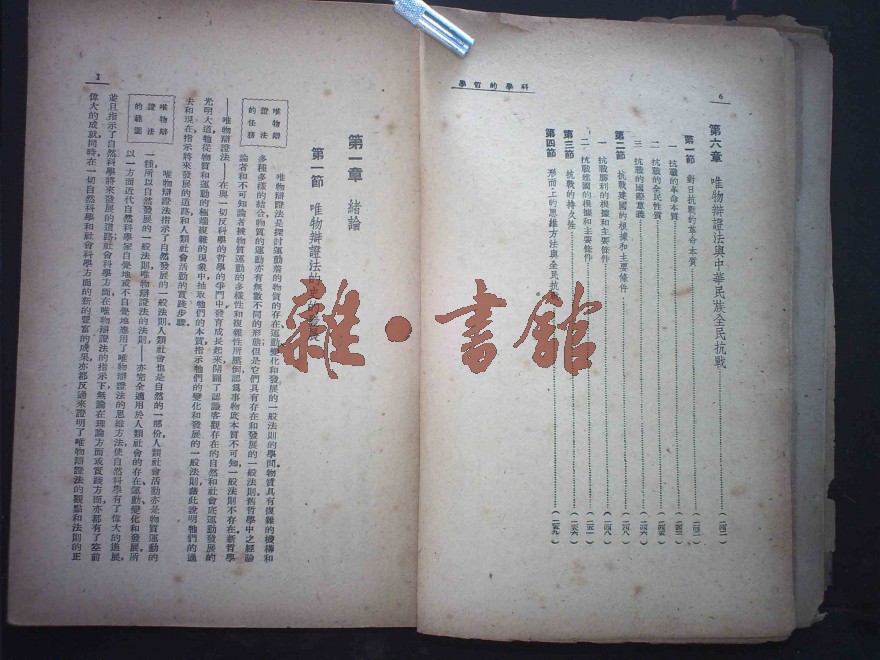 科學的哲學
6
第六章 唯物辯證法與中華民族全民抗戰……(二四二)
第一節 對日抗戰的革命本質……(二四二)
一 抗戰的革命本質
二 抗戰的全民性質……(二四五)
三 抗戰的國際意義……(二四六)
第二節 抗戰建國的根據和主要條件……(二四八)
一 抗戰勝利的根據和主要條件……(二四八)
二 抗戰建國的根據和主要條件……(二五一)
第三節 抗戰的持久性……(二五六)
第四節 形而上的思維方法與全民抗戰……(二五九)
雜·書館
1
第一章 緒論
第一節 唯物辯證法的史的發展
唯物辯證法的任務
唯物辯證法是探討運動着的物質的存在運動變化和發展的一般法則的學問物質具有複雜的機構和
多種多樣的結合物質的運動亦有無數不同的形態但是它們具有存在和發展的一般法則舊哲學中之經驗
論者和不可知論者被物質運動的多樣性和複雜性所壓倒認爲事物底本質不可知一般法則不存在新哲學
——唯物辯證法——在與一切反科學的哲學的爭鬥中發育成長起來開闢了認識客觀存在的自然和社會底運動發展的
光明大道牠從物質和運動的極端複雜的現象中抽取牠們的本質指示牠們的變化和發展的一般法則藉此說明牠們的過
去和現在指示將來發展的道路和人類社會活動的實踐步驟。
唯物辯證法的範圍
唯物辯證法指示了自然發展的一般法則人類社會也是自然的一部份人類社會活動亦是物質運動的
一種所以自然發展的一般法則唯物辯證法的法則——亦完全適用於人類社會的存在運動變化和發展。所
以一方面近代自然科學家自覺地或不自覺地應用了唯物辯證法的思維方法使自然科學有了偉大的進展,
並且指示了自然科學將來發展的道路另方面在唯物辯證法的指示下無論在理論方面或實踐方面亦都有了空前
偉大的成就同時在一切自然科學和社會科學方面的新的豐富的成果亦都反過來證明了唯物辯證法的觀點和法則的正